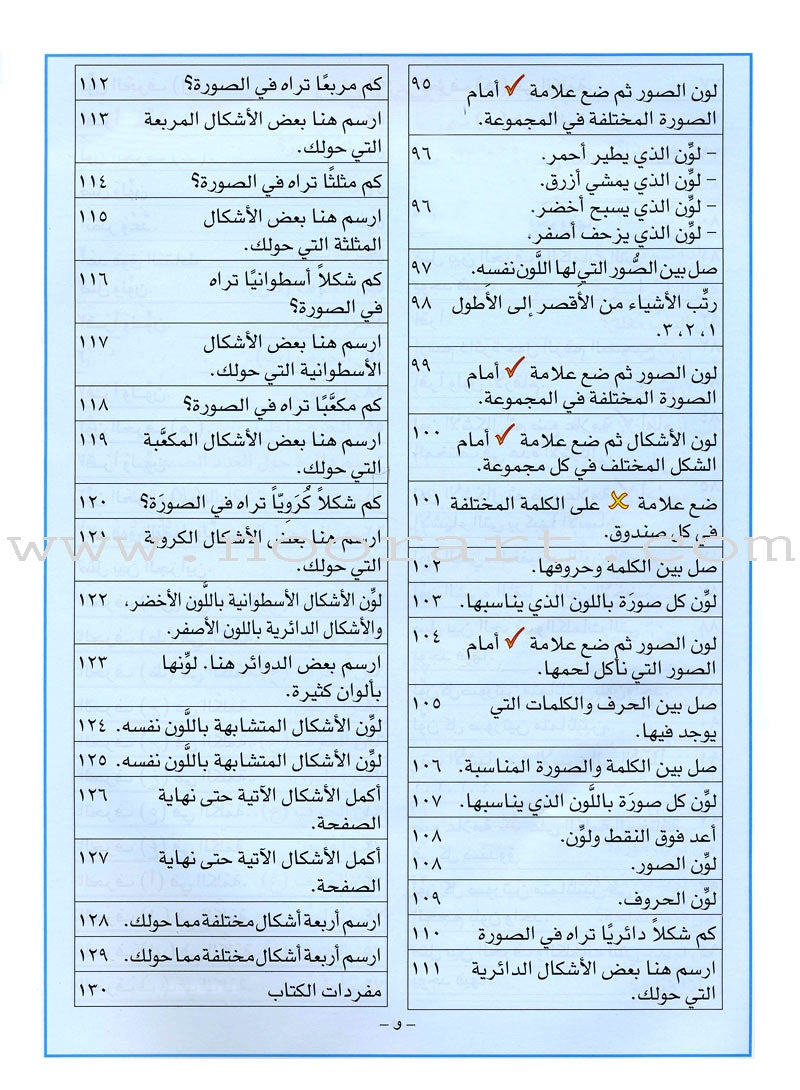 لون الصور ثم ضع علامة ✓ أمام ٩٥
الصورة المختلفة في المجموعة.
– لوِّن الذي يطير أحمر. ٩٦
– لوِّن الذي يمشي أزرق.
– لوِّن الذي يسبح أخضر. ٩٦
– لوِّن الذي يزحف أصفر.
صل بين الصُّور التي لها اللَّون نفسه. ٩٧
رتِّب الأشياء من الأقصر إلى الأطول ٩٨
١، ٢، ٣.
لون الصور ثم ضع علامة ✓ أمام ٩٩
الصورة المختلفة في المجموعة.
لون الأشكال ثم ضع علامة ✓ أمام ١٠٠
الشكل المختلف في كل مجموعة.
ضع علامة ✗ على الكلمة المختلفة ١٠١
في كل صندوق.
صل بين الكلمة وحروفها. ١٠٢
لوِّن كل صورَة باللون الذي يناسبها. ١٠٣
لون الصور ثم ضع علامة ✓ أمام ١٠٤
الصور التي نأكل لحمها.
صل بين الحرف والكلمات التي ١٠٥
يوجد فيها.
صل بين الكلمة والصورة المناسبة. ١٠٦
لوِّن كل صورَة باللَّون الذي يناسبها. ١٠٧
أعد فوق النقط ولوِّن. ١٠٨
لوِّن الصور. ١٠٨
لوِّن الحروف. ١٠٩
كم شكلاً دائريًا تراه في الصورة ١١٠
ارسم هنا بعض الأشكال الدائرية ١١١
التي حولك.
كم مربعًا تراه في الصورة؟ ١١٢
ارسم هنا بعض الأشكال المربعة ١١٣
التي حولك.
كم مثلثًا تراه في الصورة؟ ١١٤
ارسم هنا بعض الأشكال ١١٥
المثلثة التي حولك.
كم شكلاً أسطوانيًا تراه ١١٦
في الصورة؟
ارسم هنا بعض الأشكال ١١٧
الأسطوانية التي حولك.
كم مكعَّبًا تراه في الصورة؟ ١١٨
ارسم هنا بعض الأشكال المكعَّبة ١١٩
التي حولك.
كم شكلاً كُرَوِيّاً تراه في الصورَة؟ ١٢٠
ارسم هنا بعض الأشكال الكروية ١٢١
التي حولك.
لوِّن الأشكال الأسطوانية باللَّون الأخضر، ١٢٢
والأشكال الدائرية باللون الأصفر.
ارسم بعض الدوائر هنا. لوِّنها ١٢٣
بألوان كثيرة.
لوِّن الأشكال المتشابهة باللَّون نفسه. ١٢٤
لوِّن الأشكال المتشابهة باللَّون نفسه. ١٢٥
أكمل الأشكال الآتية حتى نهاية ١٢٦
الصفحة.
أكمل الأشكال الآتية حتى نهاية ١٢٧
الصفحة.
ارسم أربعة أشكال مختلفة مما حولك. ١٢٨
ارسم أربعة أشكال مختلفة مما حولك. ١٢٩
مفردات الكتاب ١٣٠
– و –
www.noorart.com